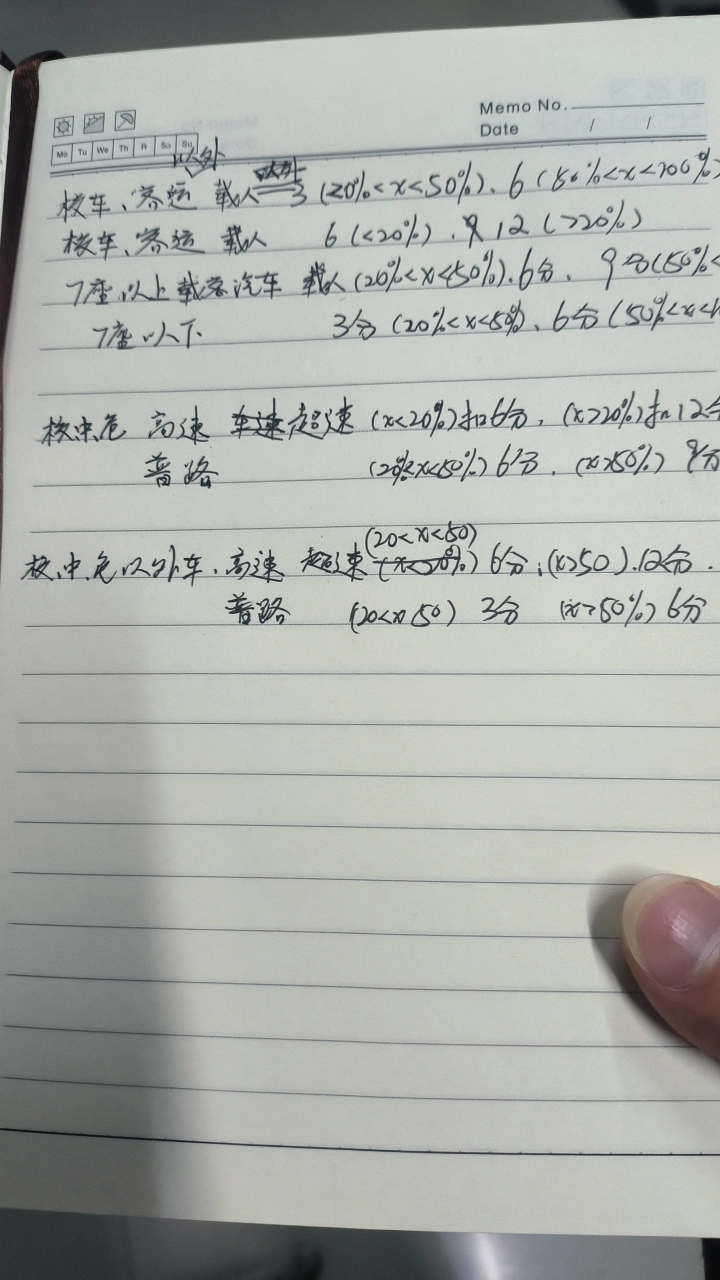 Memo No.
Date / /
Mo Tu We Th Fr Sa Su
以外
校车、客运 载人 3 (20%<x<50%)、6 (50%<x<100%)
校车、客运 载人 6 (<20%)、12 (>20%)
7座以上载客汽车 载人(20%<x<50%)、6分、9分(50%<
7座以下 3分(20%<x<50%)、6分(50%<x<1
校中危 高速 超速 (x<20%)扣6分,(x>20%)扣12分
普路 (20%<x<50%) 6分,(x>50%) 9分
(20<x<50)
校中危以外车、高速 超速 6分,(x>50)、12分.
普路 (20<x 50) 3分 (x>50%) 6分